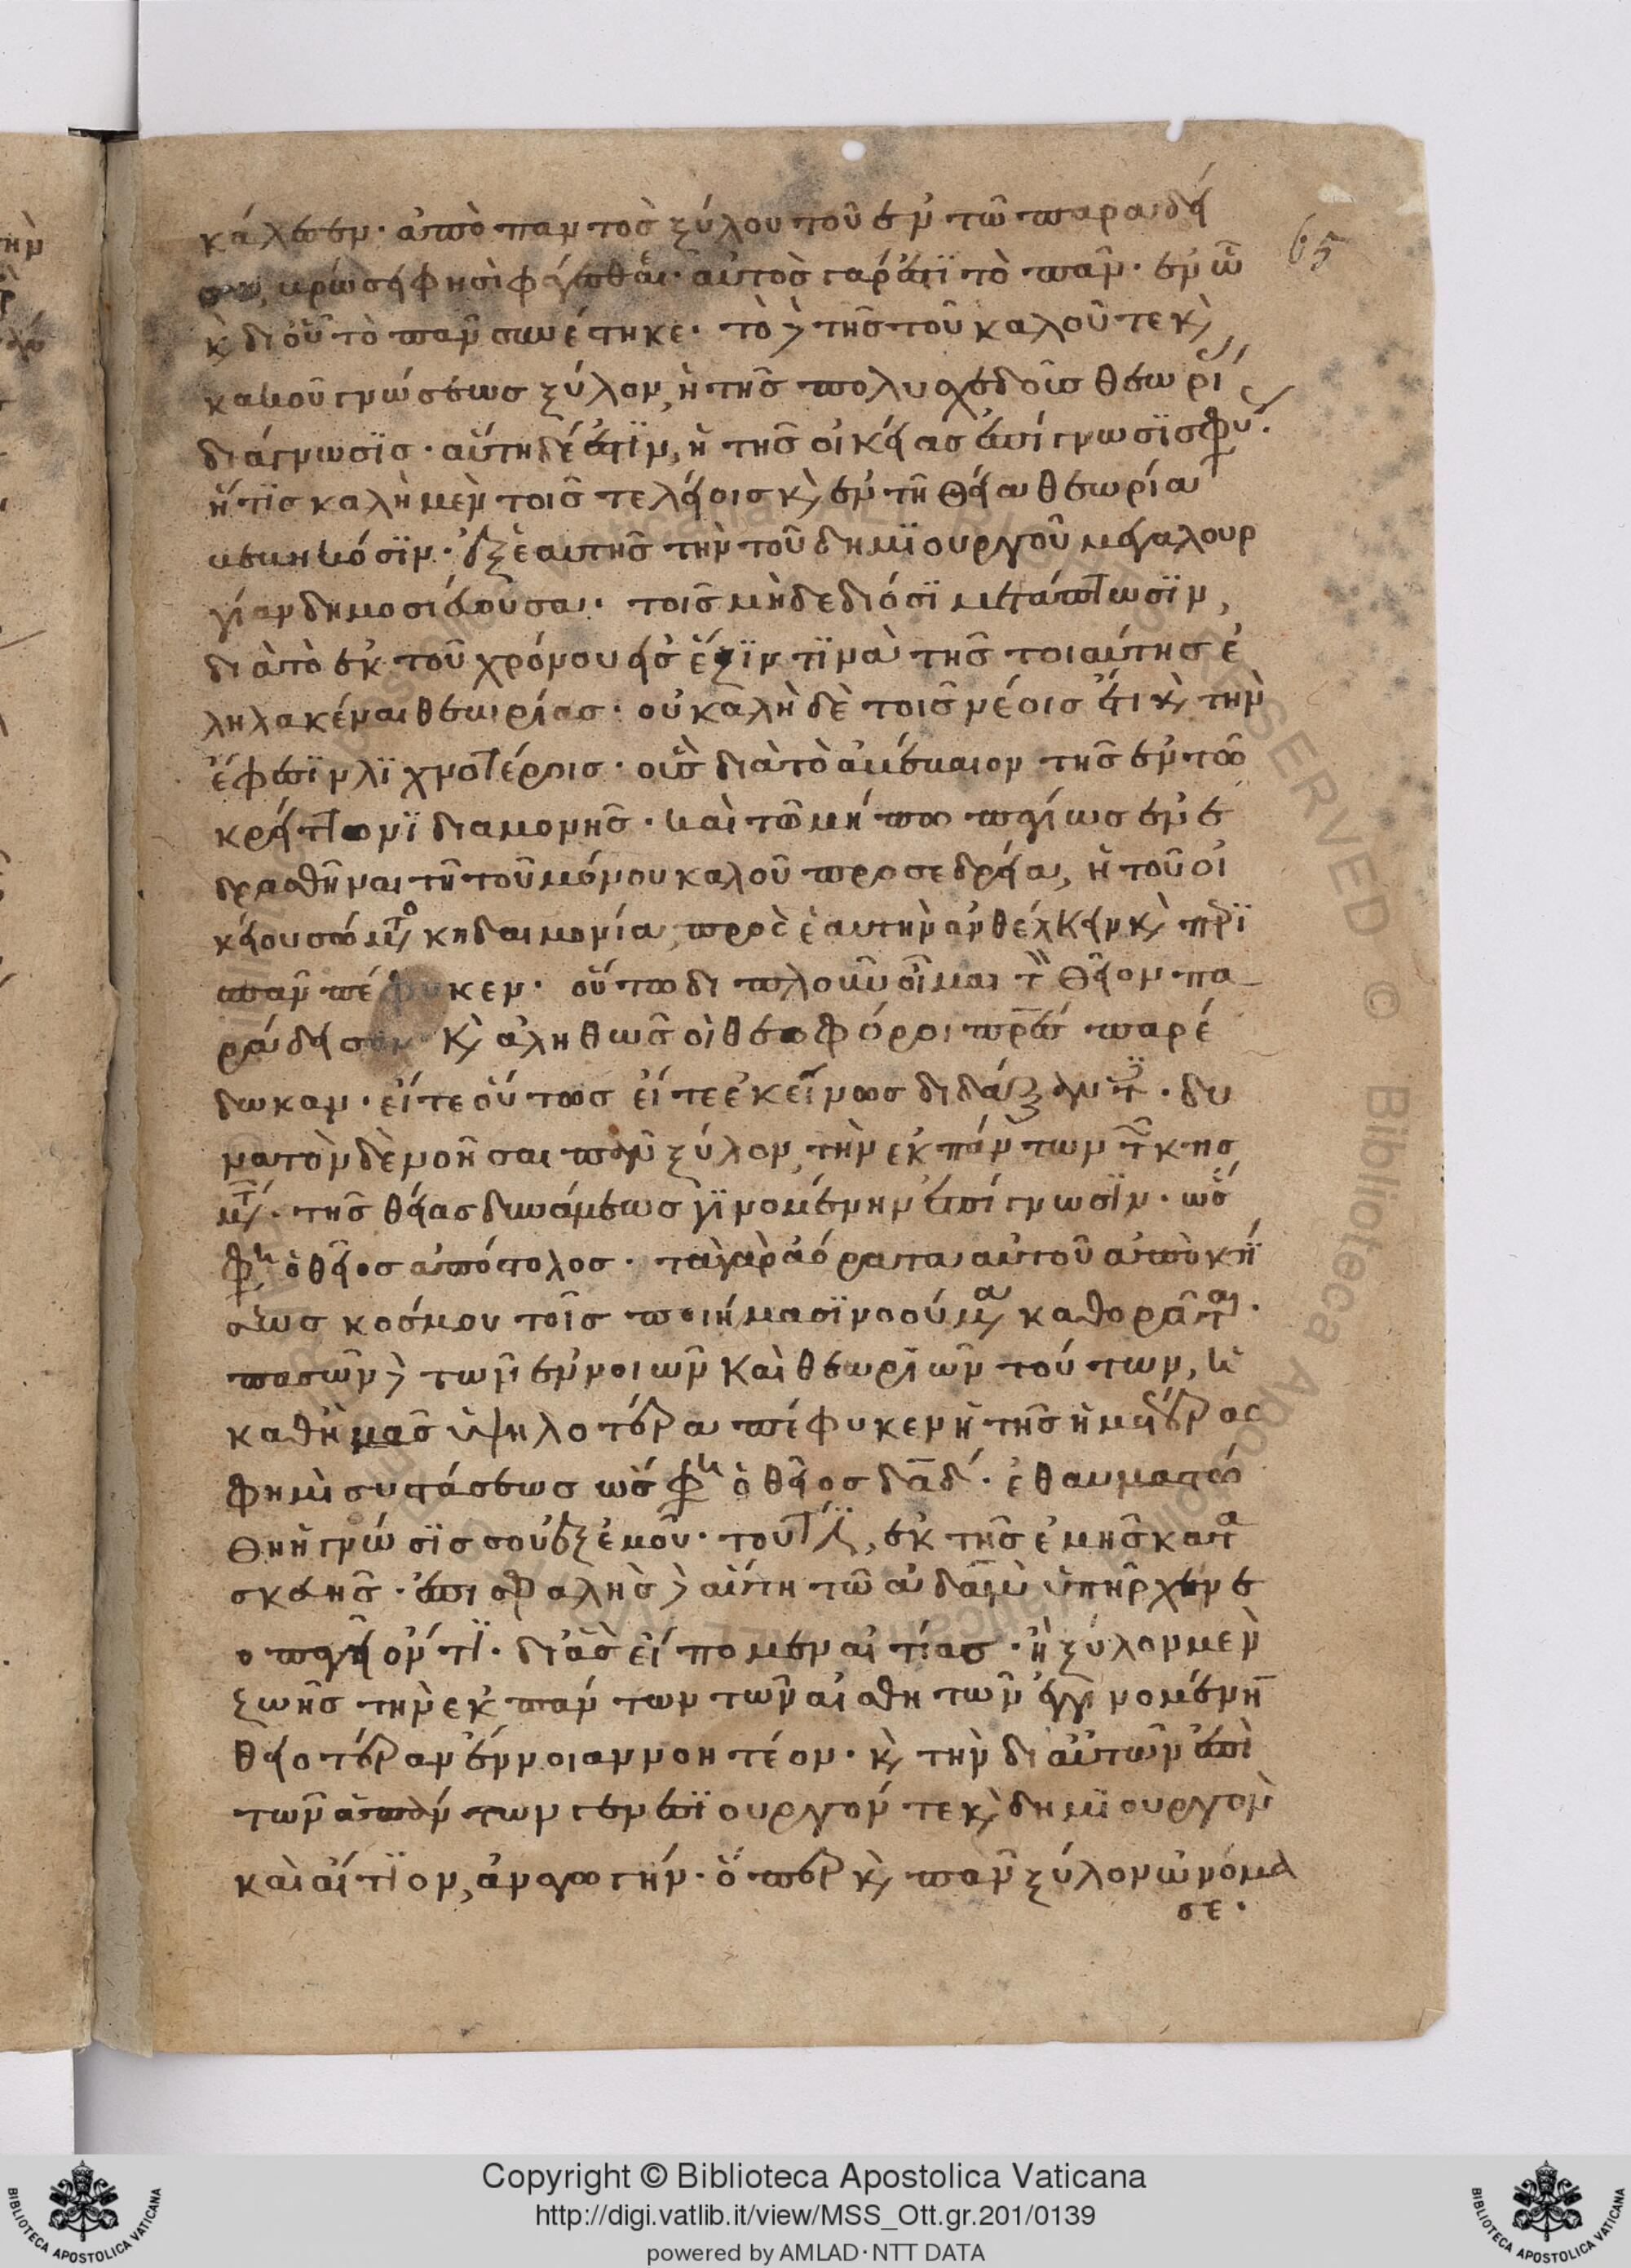 κάλεσεν· ἀπὸ παντὸς ξύλου τοῦ ἐν τῷ παραδεί
σω, βρώσει φησὶ φάγεσθαι· αὐτὸς γάρ ἐστι τὸ πᾶν· ἐν ᾧ
κ(αὶ) δι οὗ τὸ πᾶν συνέστηκε· τὸ δὲ τῆς τοῦ καλοῦ τε κ(αὶ)
κακοῦ γνώσεως ξύλον, ἡ τῆς πολυσχεδοῦς θεωρί(ας)
διάγνωσις· αὕτη δέ ἐστιν, ἡ τῆς οἰκείας ἐπίγνωσις φύ(σεως)·
ἥτις καλὴ μὲν τοῖς τελείοις κ(αὶ) ἐν τῆ θεία θεωρία
βεβηκόσιν· ἐξ ἑαυτῆς τὴν τοῦ δημιουργοῦ μεγαλουρ
γίαν δημοσιεύουσα· τοῖς μὴ δεδιόσι μετάπτωσιν,
διὰ τὸ ἐκ τοῦ χρόνου εἰς ἕξιν τινὰ τῆς τοιαύτης ἐ
ληλακέναι θεωρίας· οὐ καλὴ δὲ τοῖς νέοις ἔτι κ(αὶ) τὴν
ἔφεσιν λιχνοτέροις· οὓς διὰ τὸ ἀβέβαιον τῆς ἐν τῶ
κρείττονι διαμονῆς· καὶ τῶ μήπω παγίως ἐνε
δρασθῆναι τῆ τοῦ μόνου καλοῦ προσεδρεία, ἡ τοῦ οἰ
κείου σώματο(ς) κηδαιμονία, πρὸς ἑαυτὴν ἀνθέλκειν κ(αὶ) περι
σπᾶν πέφυκεν· οὕτω διπλοῦν οἶμαι τὸν θεῖον πα
ράδεισον κ(αὶ) ἀληθῶς οἱ θεοφόροι πρς παρέ
δωκαν· εἴτε οὕτως εἴτε ἐκείνως διδάξαντες· δυ
νατὸν δὲ νοῆσαι πᾶν ξύλον, τὴν ἐκ πάντων τῶν κτισ
μάτ(ων)· τῆς θείας δυνάμεως γινομένην ἐπίγνωσιν· ὥς
φη(σὶν) ὁ θεῖος ἀπόστολος· τὰ γὰρ ἀόρατα αὐτοῦ ἀπὸ κτί
σεως κόσμου τοῖς ποιήμασι νοούμ(εν)α καθορᾶται·
πασῶν δὲ τῶν ἐννοιῶν καὶ θεωριῶν τούτων, ἡ
καθ ἡμᾶς ὑψηλοτέρα πέφυκεν ἡ τῆς ἡμετέρας
φημὶ συστάσεως ὥς φη(σὶν) ὁ θεῖος δαδ· ἐθαυμαστώ
θη ἡ γνῶσίς σου ἐξ ἐμοῦ· τουτέστιν, ἐκ τῆς ἐμῆς κατα
σκευῆς· ἐπισφαλὴς δὲ αὕτη τῶ ἀδὰμ ὑπῆρχε νε
οπαγεῖ ὄντι· δι ἃς εἴπομεν αἰτίας· ἢ ξύλον μὲν
ζωῆς τὴν ἐκ πάντων τῶν αἰσθητῶν ἐγγινομένην
θειοτέραν ἔννοιαν νοητέον· κ(αὶ) τὴν δι αὐτῶν ἐπὶ
τῶν ἁπάντων γενεσιουργόν τε κ(αὶ) δημιουργὸν
καὶ αἴτιον, ἀναγωγήν· ὅπερ κ(αὶ) πᾶν ξύλον ὠνόμα
σε·
65
Copyright © Biblioteca Apostolica Vaticana
http://digi.vatlib.it/view/MSS_Ott.gr.201/0139
powered by AMLAD·NTT DATA